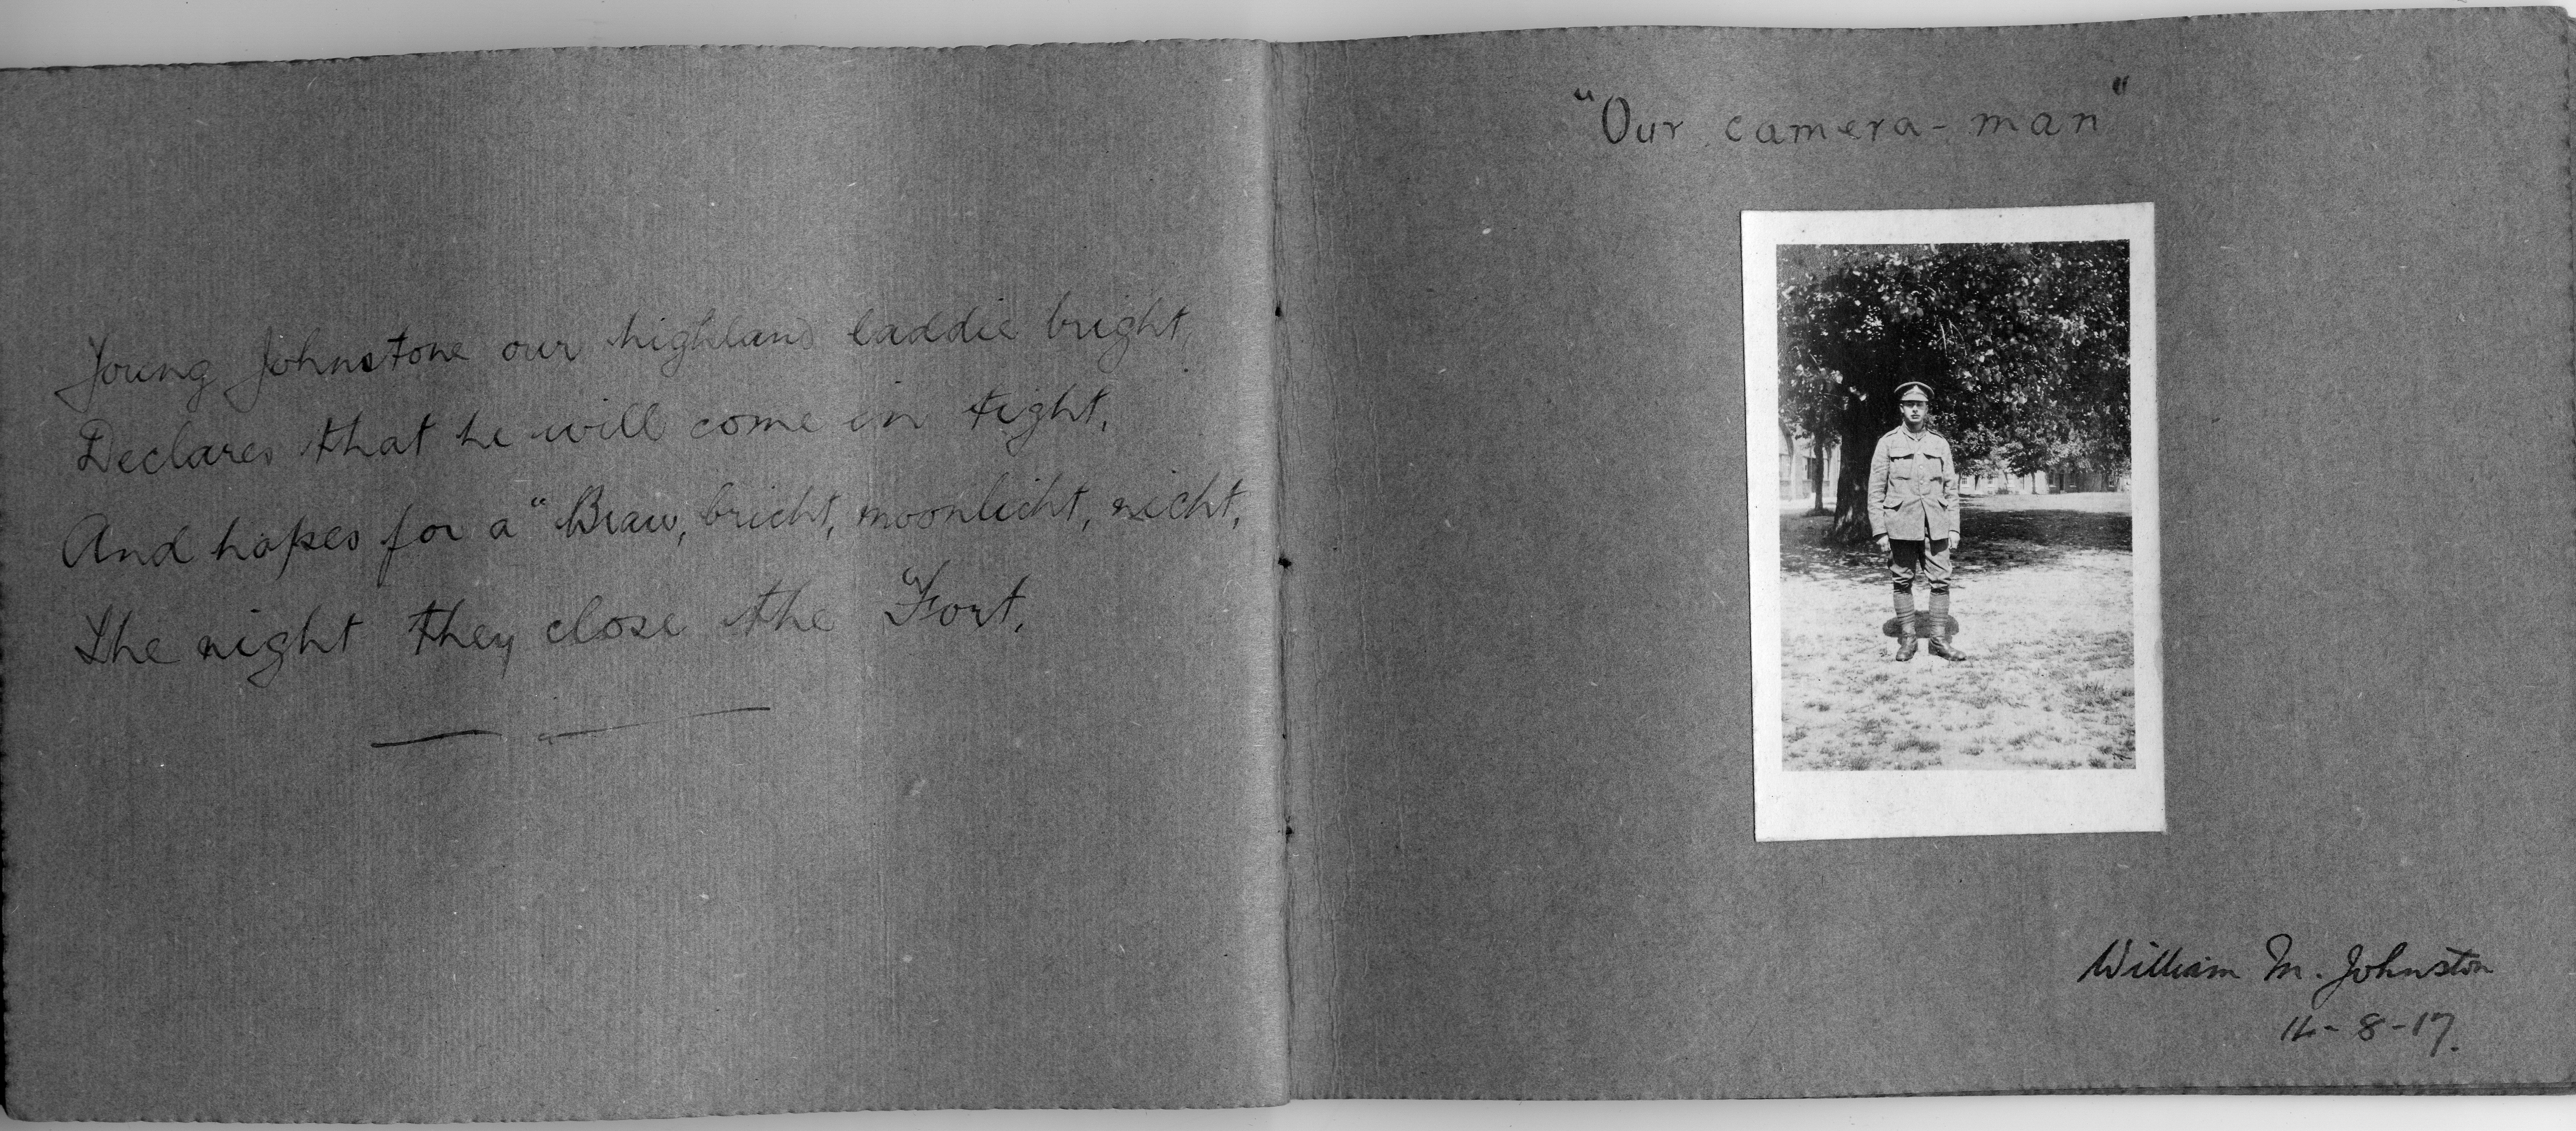 Young Johnstone our highland laddie bright,
Declares that he will come in tight,
And hopes for a "Braw, bricht, moonlicht, nicht,
The night they close the Fort.
"Our camera-man"
William M. Johnston
14-8-17.